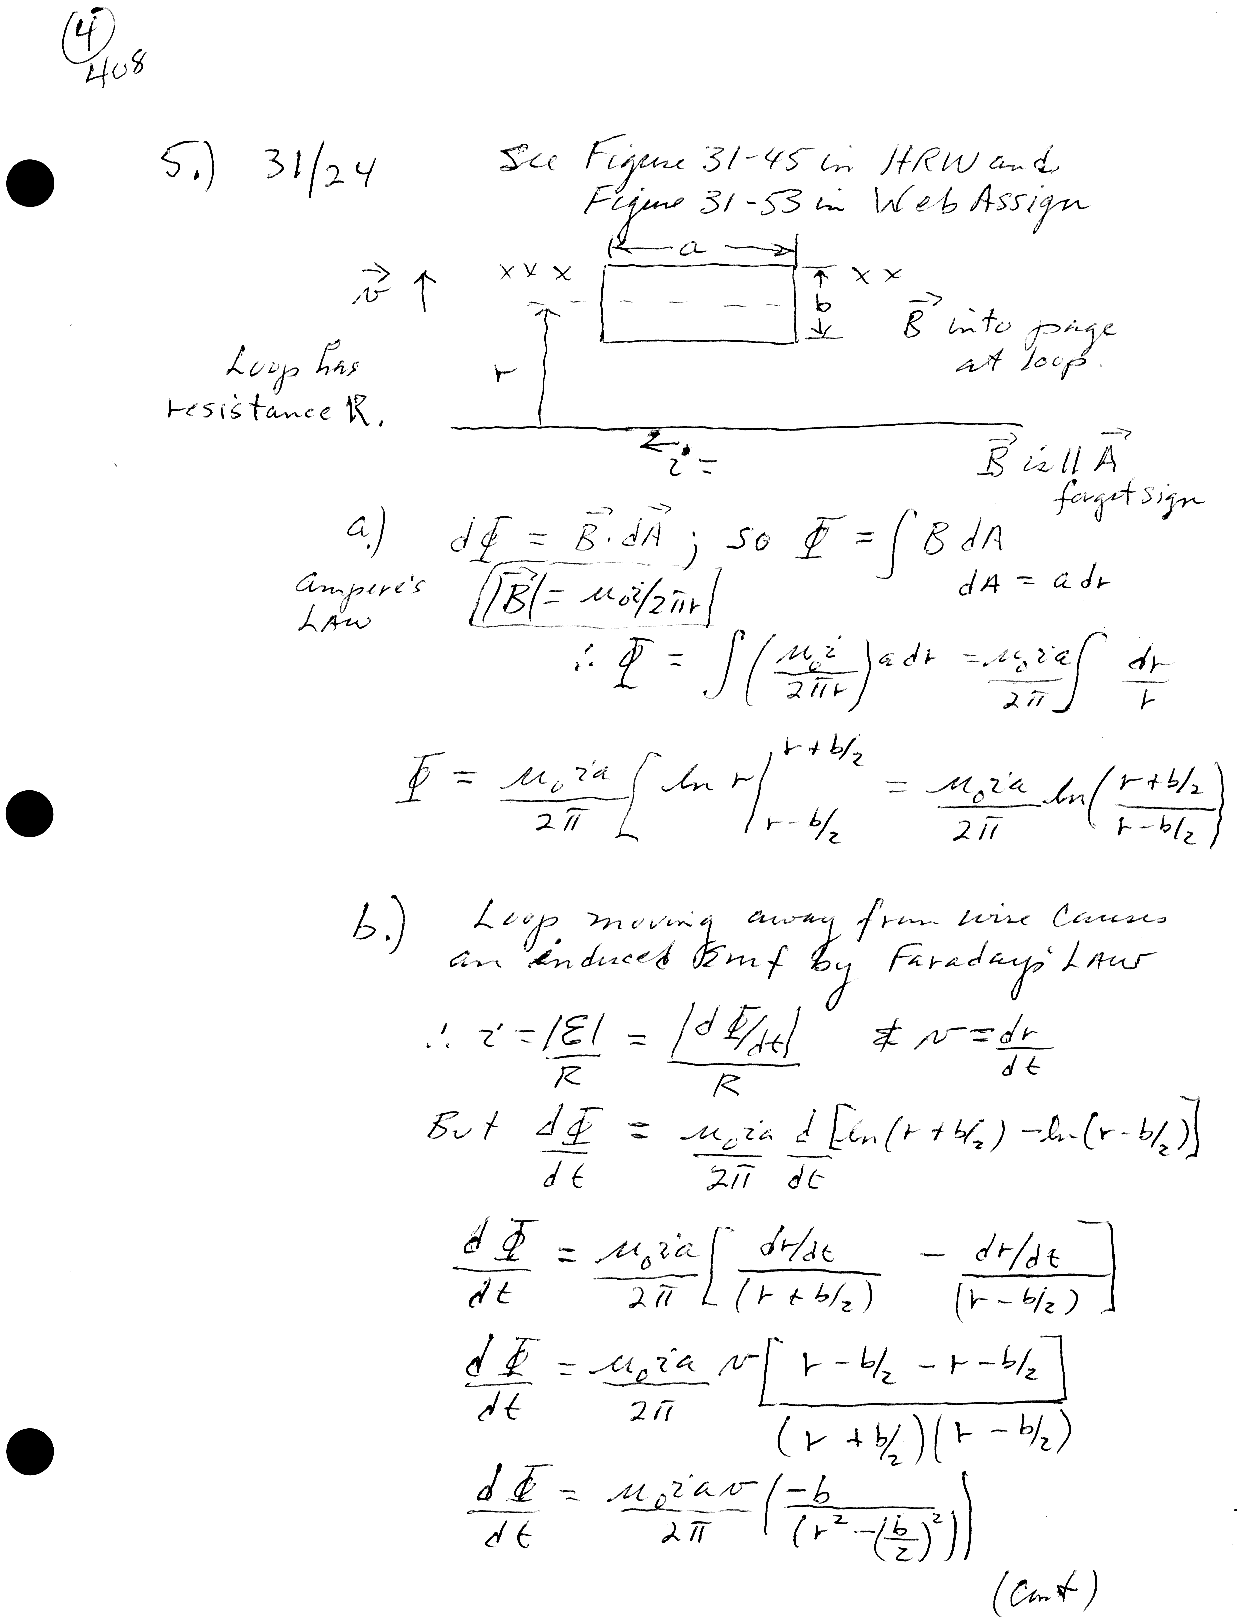 4
408
5.) 31/24 See Figure 31-45 in HRW and
Figure 31-53 in WebAssign
a
v⃗ ↑ x x x b x x
B⃗ into page
at loop.
Loop has
resistance R.
r
i =
B⃗ is || A⃗
forget sign
a.) dΦ = B⃗·dA⃗ ; so Φ = ∫ B dA
Ampere's
LAW
|B⃗| = μ₀i/2πr
dA = a dr
∴ Φ = ∫ (μ₀i/2πr) a dr = μ₀ia/2π ∫ dr/r
Φ = μ₀ia/2π [ ln r |_{r-b/2}^{r+b/2} = μ₀ia/2π ln( (r+b/2)/(r-b/2) )
b.) Loop moving away from wire causes
an induced Emf by Faraday's LAW
∴ i = |ℰ|/R = |dΦ/dt|/R & v = dr/dt
But dΦ/dt = μ₀ia/2π d/dt [ln(r+b/2) - ln(r-b/2)]
dΦ/dt = μ₀ia/2π [ (dr/dt)/(r+b/2) - (dr/dt)/(r-b/2) ]
dΦ/dt = μ₀ia/2π v [ r-b/2 - r-b/2 ] / (r+b/2)(r-b/2)
dΦ/dt = μ₀iav/2π ( -b/(r²-(b/2)²) )
(cont)